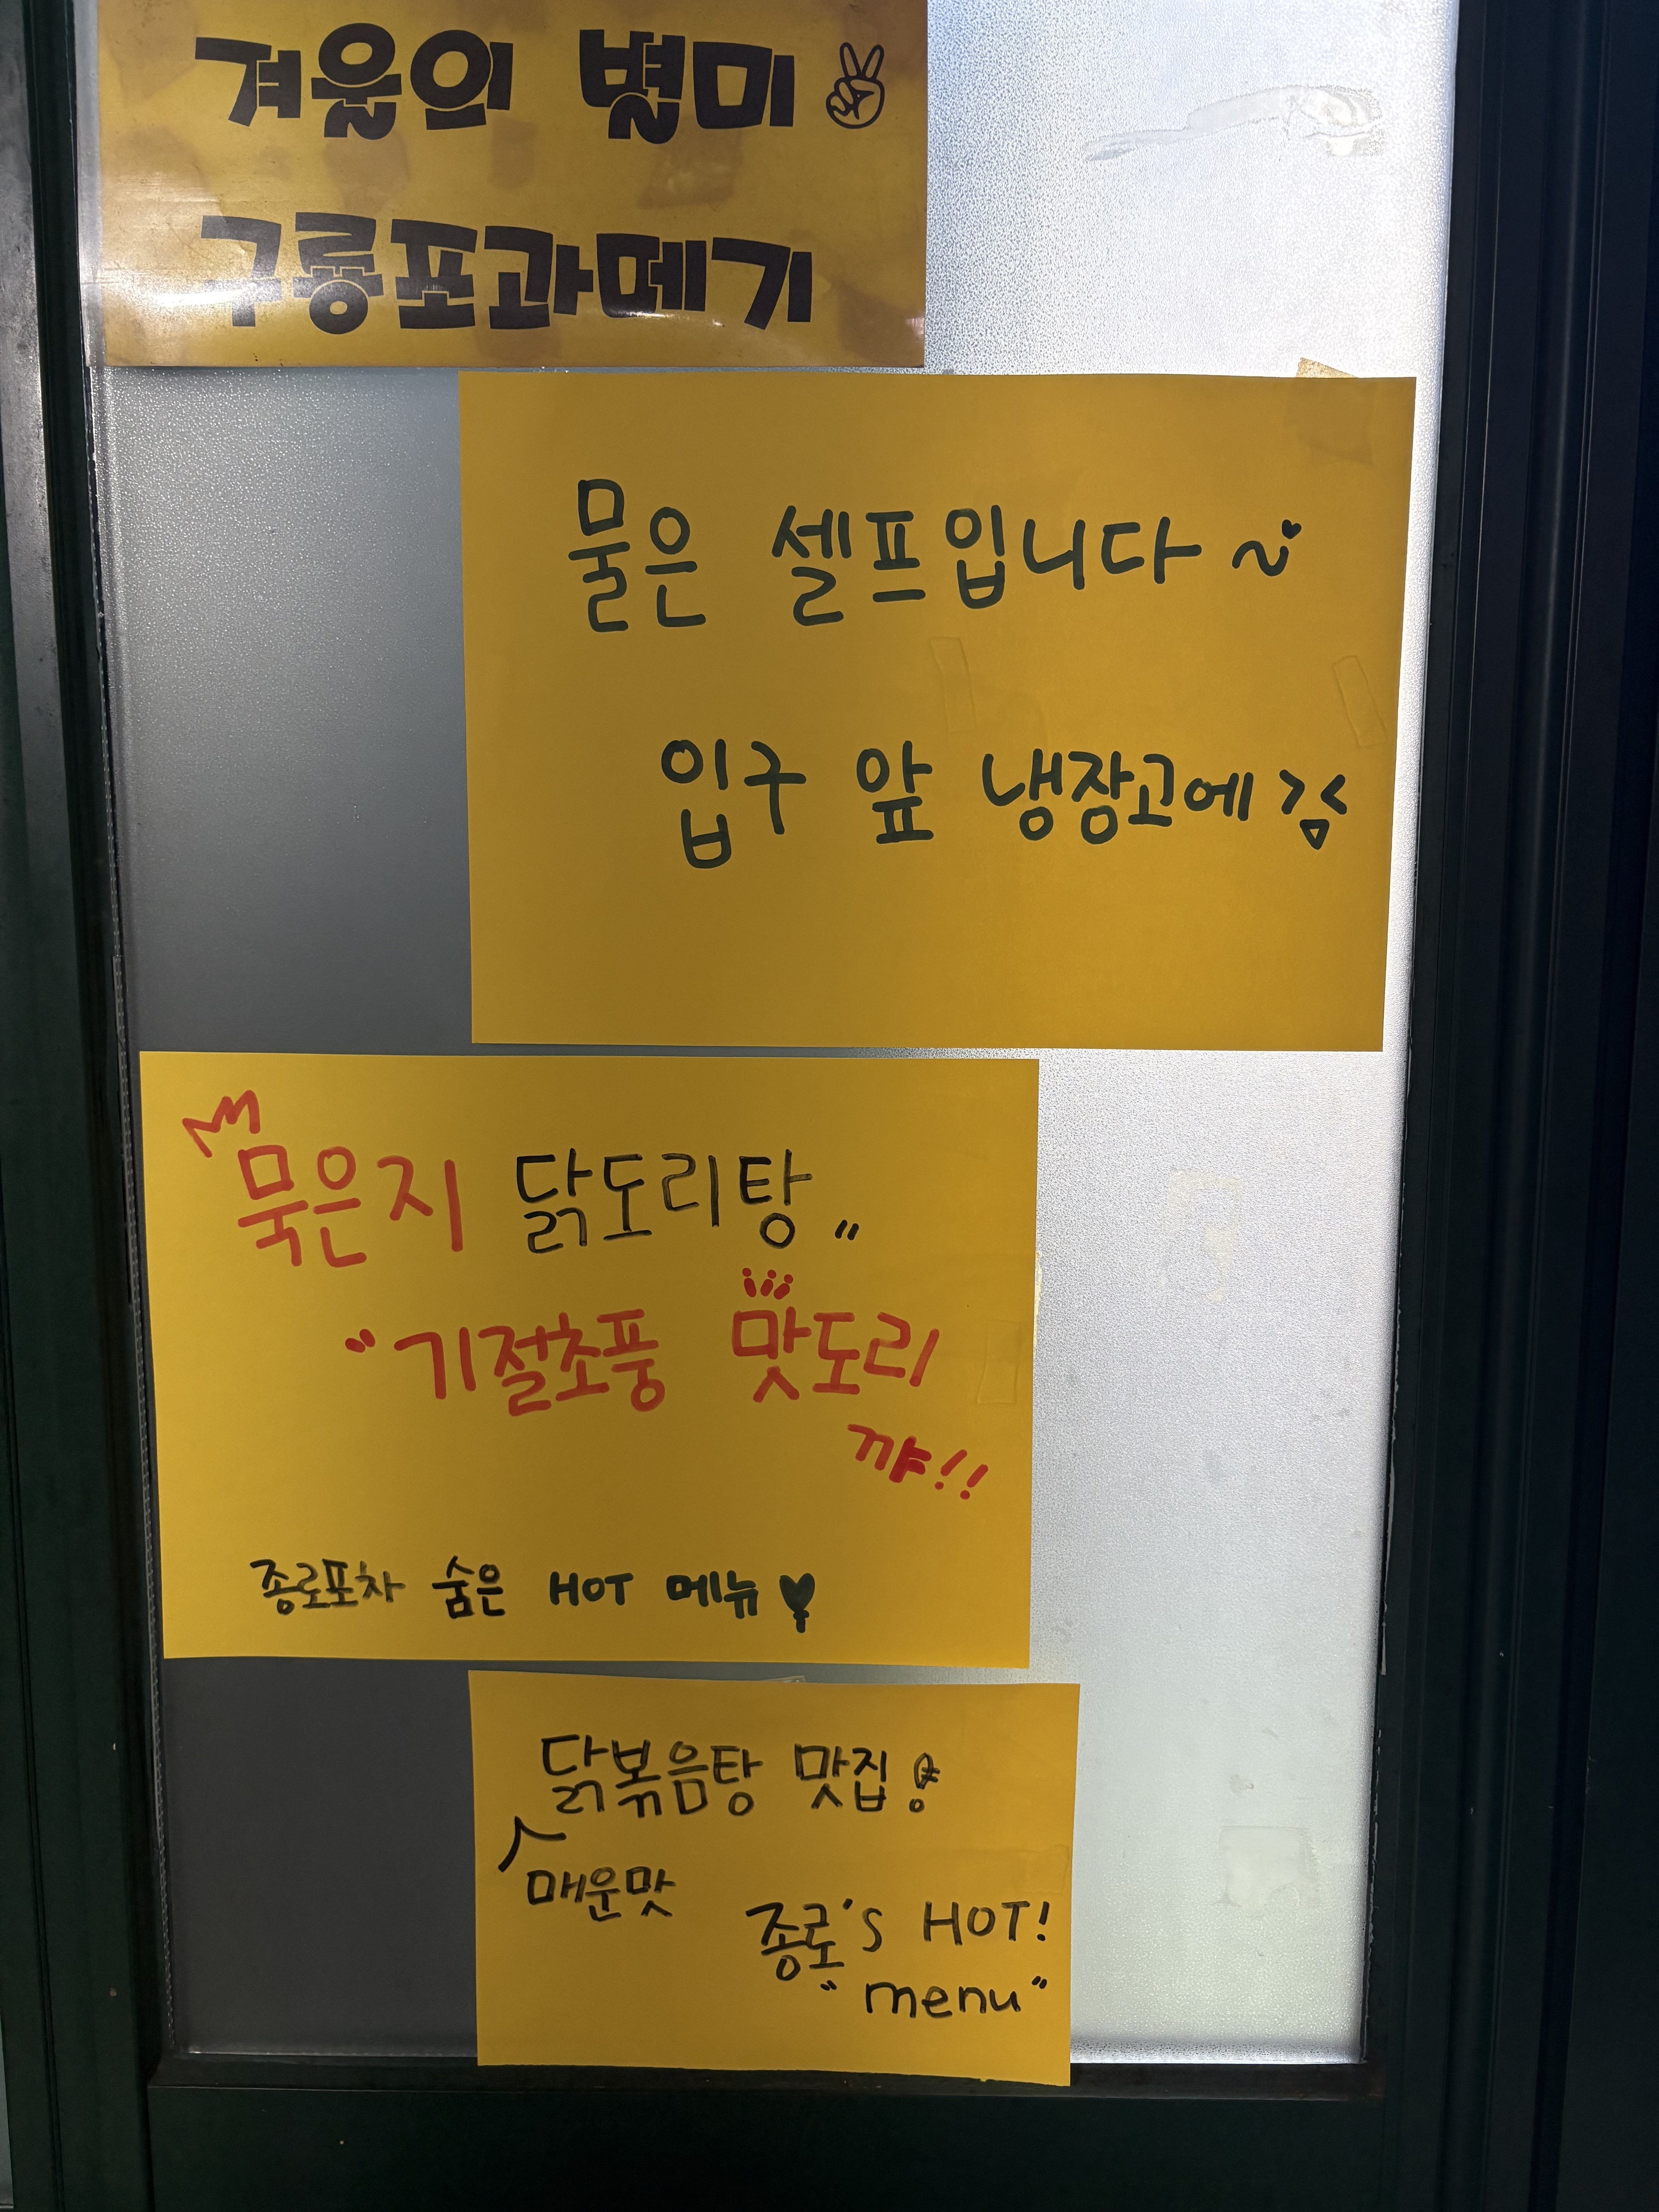 겨울의 별미 ✌
구룡포과메기
물은 셀프입니다 ~♥
입구 앞 냉장고에 >.<
묵은지 닭도리탕〃
“기절초풍 맛도리
꺄!!
종로포차 숨은 HOT 메뉴♥
닭볶음탕 맛집!
매운맛
종로's HOT!
“menu”